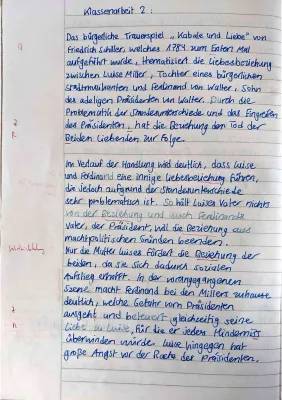 Klassenarbeit 2:
Das bürgerliche Trauerspiel „Kabale und Liebe" von
Friedrich Schiller, welches 1784 zum ersten Mal
aufgeführt wurde, thematisiert die Liebesbeziehung
zwischen Luise Miller, Tochter eines bürgerlichen
Stadtmusikanten und Ferdinand von Walter, Sohn
des adeligen Präsidenten von Walter. Durch die
Problematik der Standesunterschiede und das Eingreifen
des Präsidenten, hat die Beziehung den Tod der
beiden Liebenden zur Folge.
Im Verlauf der Handlung wird deutlich, dass Luise
und Ferdinand eine innige Liebesbeziehung führen,
die jedoch aufgrund der Standesunterschiede
sehr problematisch ist. So hält Luises Vater nichts
von der Beziehung und auch Ferdinands
Vater, der Präsident, will die Beziehung aus
machtpolitischen Gründen beenden.
Nur die Mutter Luises fördert die Beziehung der
beiden, da sie sich dadurch sozialen
Aufstieg erhofft. In der vorangegangenen
Szene macht Ferdinand bei den Millers zuhause
deutlich, welche Gefahr vom Präsidenten
ausgeht und beteuert gleichzeitig seine
Liebe zu Luise, für die er jedes Hindernis
überwinden würde. Luise hingegen hat
große Angst vor der Rache des Präsidenten.